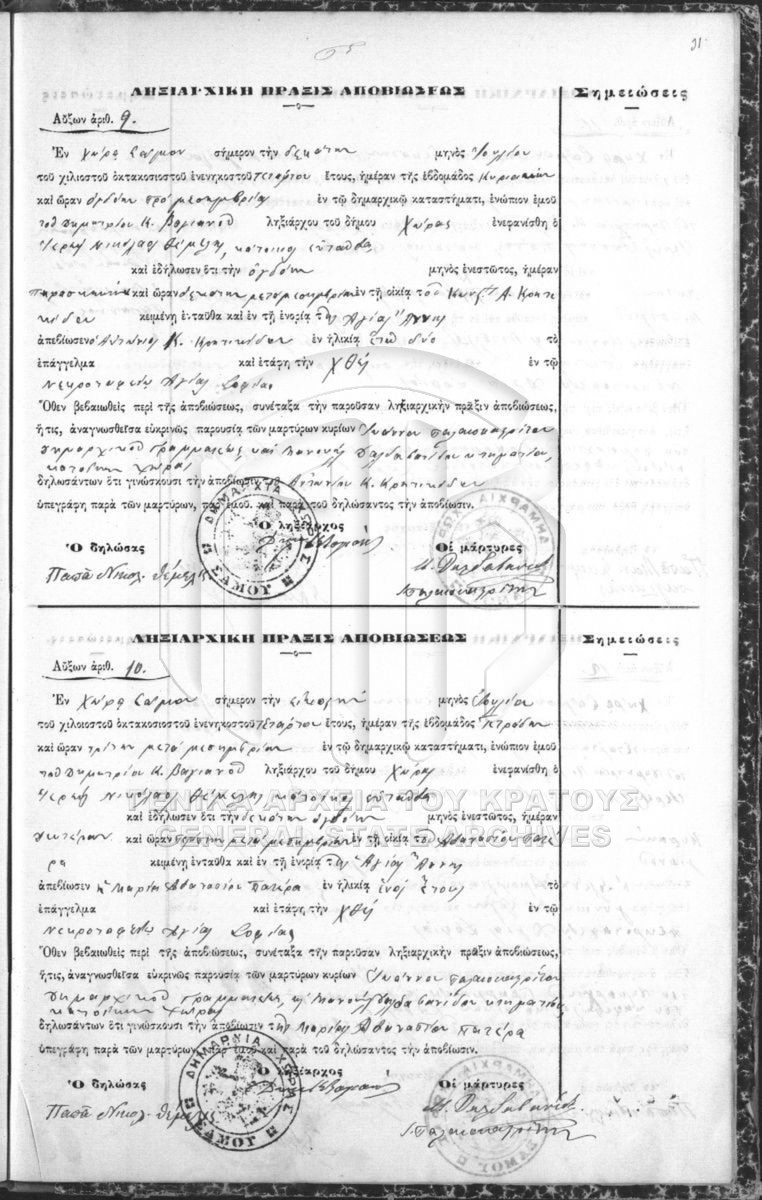 31
ΛΗΞΙΑΡΧΙΚΗ ΠΡΑΞΙΣ ΑΠΟΒΙΩΣΕΩΣ
Σημειώσεις
Αὔξων ἀριθ. 9.
Ἐν Χώρᾳ Σάμου σήμερον τὴν δεκάτην μηνὸς Ἰουλίου
τοῦ χιλιοστοῦ ὀκτακοσιοστοῦ ἐνενηκοστοῦ τετάρτου ἔτους, ἡμέραν τῆς ἑβδομάδος Κυριακὴν
καὶ ὥραν ὀγδόην πρὸ μεσημβρίας ἐν τῷ δημαρχικῷ καταστήματι, ἐνώπιον ἐμοῦ
τοῦ Δημητρίου Κ. Βαγιανοῦ ληξιάρχου τοῦ δήμου Χώρας ἐνεφανίσθη ὁ
Ἱερεὺς Νικόλαος Θέμελης, κάτοικος ἐνταῦθα
καὶ ἐδήλωσεν ὅτι τὴν ὀγδόην μηνὸς ἐνεστῶτος, ἡμέραν
παρασκευὴν καὶ ὥραν δεκάτην μεταμεσημβρίαν ἐν τῇ οἰκίᾳ τοῦ Κωνστ. Α. Κρητι
κίδου κειμένῃ ἐνταῦθα καὶ ἐν τῇ ἐνορίᾳ τῆς Ἁγίας Ἄννης
ἀπεβίωσεν ὁ Ἀντώνιος Κ. Κρητικίδης ἐν ἡλικίᾳ ἐτῶν δύο τὸ
ἐπάγγελμα καὶ ἐτάφη τὴν χθὲς ἐν τῷ
Νεκροταφείῳ Ἁγίας Σοφίας
Ὅθεν βεβαιωθεὶς περὶ τῆς ἀποβιώσεως, συνέταξα τὴν παροῦσαν ληξιαρχικὴν πρᾶξιν ἀποβιώσεως,
ἥτις, ἀναγνωσθεῖσα εὐκρινῶς παρουσίᾳ τῶν μαρτύρων κυρίων Ἰωάννου
δημαρχικοῦ Γραμματέως καὶ Μανουὴλ κτηματίου,
κατοίκων Χώρας
δηλωσάντων ὅτι γινώσκουσι τὴν ἀποβίωσιν τοῦ Ἀντωνίου Κ. Κρητικίδου
ὑπεγράφη παρὰ τῶν μαρτύρων, παρ' ἐμοῦ καὶ παρὰ τοῦ δηλώσαντος τὴν ἀποβίωσιν.
Ὁ ληξίαρχος
Ὁ δηλώσας
Οἱ μάρτυρες
Παπᾶ Νικολ. Θέμελης
ΔΗΜΑΡΧΙΑ ΧΩΡΑΣ ΣΑΜΟΥ
ΛΗΞΙΑΡΧΙΚΗ ΠΡΑΞΙΣ ΑΠΟΒΙΩΣΕΩΣ
Σημειώσεις
Αὔξων ἀριθ. 10.
Ἐν Χώρᾳ Σάμου σήμερον τὴν εἰκοστὴν μηνὸς Ἰουλίου
τοῦ χιλοιοστοῦ ὀκτακοσιοστοῦ ἐνενηκοστοῦ τετάρτου ἔτους, ἡμέραν τῆς ἑβδομάδος τετράδην
καὶ ὥραν τρίτην μετὰ μεσημβρίαν ἐν τῷ δημαρχικῷ καταστήματι, ἐνώπιον ἐμοῦ
τοῦ Δημητρίου Κ. Βαγιανοῦ ληξιάρχου τοῦ δήμου Χώρας ἐνεφανίσθη ὁ
Ἱερεὺς Νικόλαος Θέμελης κάτοικος ἐνταῦθα
ΓΕΝΙΚΑ ΑΡΧΕΙΑ ΤΟΥ ΚΡΑΤΟΥΣ
καὶ ἐδήλωσεν ὅτι τὴν δεκάτην ὀγδόην μηνὸς ἐνεστῶτος, ἡμέραν
GENERAL STATE ARCHIVES
δευτέραν καὶ ὥραν μετὰ μεσημβρίαν ἐν τῇ οἰκίᾳ τοῦ Ἀθανασίου Πατέ
ρα κειμένῃ ἐνταῦθα καὶ ἐν τῇ ἐνορίᾳ τῆς Ἁγίας Ἄννης
ἀπεβίωσεν ἡ Μαρία Ἀθανασίου Πατέρα ἐν ἡλικίᾳ ἑνὸς ἔτους τὸ
ἐπάγγελμα καὶ ἐτάφη τὴν χθὲς ἐν τῷ
Νεκροταφείῳ Ἁγίας Σοφίας
Ὅθεν βεβαιωθεὶς περὶ τῆς ἀποβιώσεως, συνέταξα τὴν παροῦσαν ληξιαρχικὴν πρᾶξιν ἀποβιώσεως,
ἥτις, ἀναγνωσθεῖσα εὐκρινῶς παρουσίᾳ τῶν μαρτύρων κυρίων Ἰωάννου
δημαρχικοῦ Γραμματέως, καὶ Μανουὴλ κτηματίου
κατοίκων Χώρας
δηλωσάντων ὅτι γινώσκουσι τὴν ἀποβίωσιν τῆς Μαρίας Ἀθανασίου Πατέρα
ὑπεγράφη παρὰ τῶν μαρτύρων, παρ' ἐμοῦ καὶ παρὰ τοῦ δηλώσαντος τὴν ἀποβίωσιν.
Ὁ ληξίαρχος
Ὁ δηλώσας
Οἱ μάρτυρες
Παπᾶ Νικολ. Θέμελης
ΔΗΜΑΡΧΙΑ ΧΩΡΑΣ ΣΑΜΟΥ